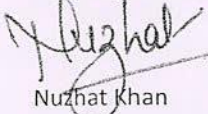 Nuzhat
Nuzhat Khan